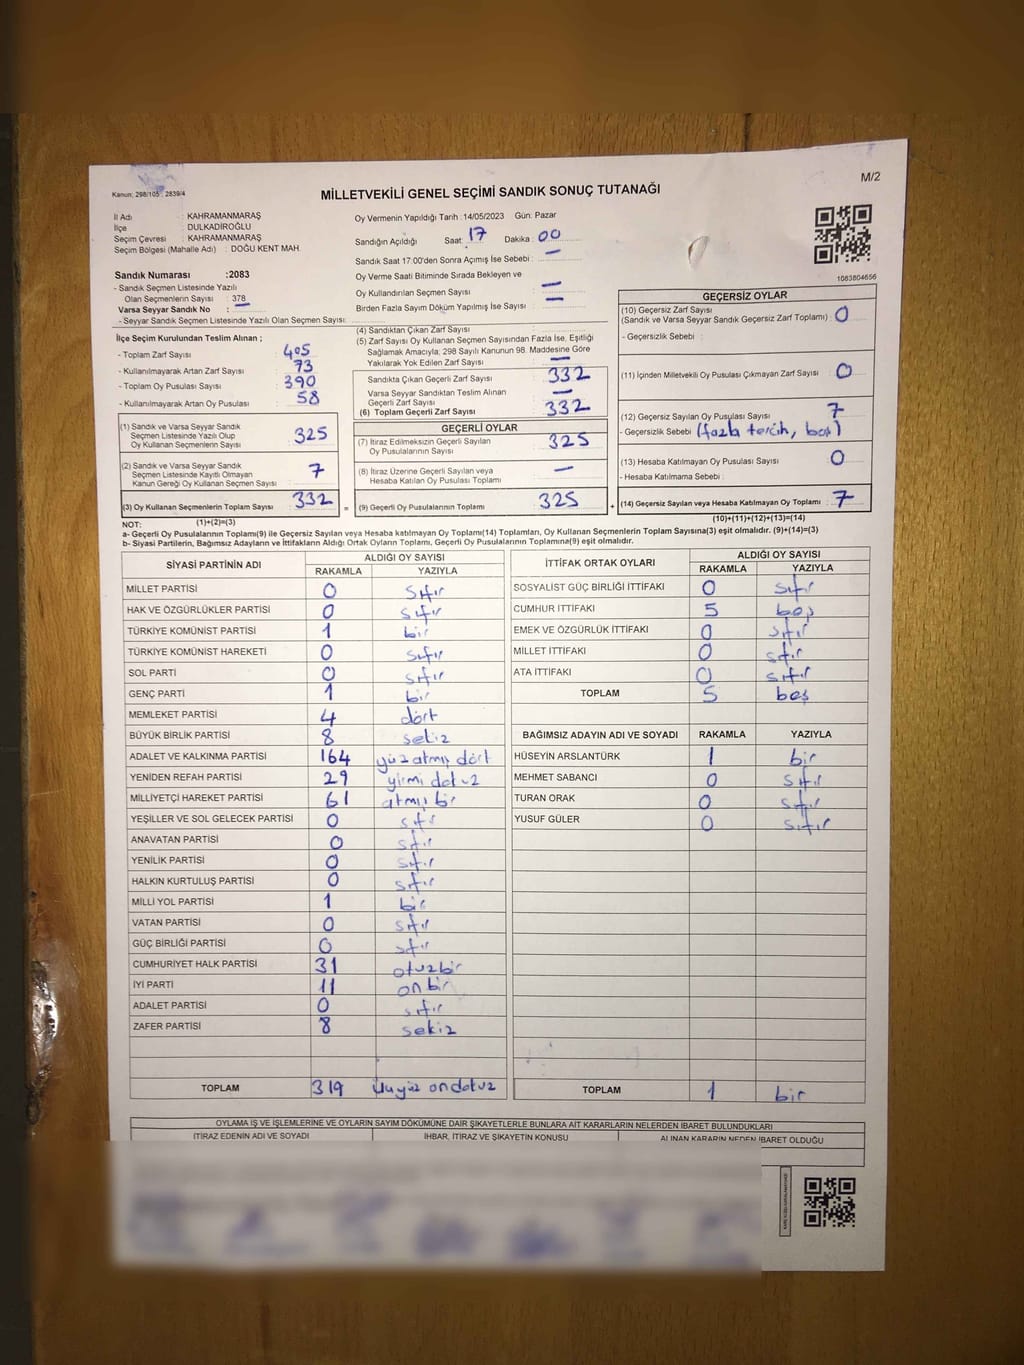 Kanun: 298/105 , 2839/4
M/2
MİLLETVEKİLİ GENEL SEÇİMİ SANDIK SONUÇ TUTANAĞI
İl Adı : KAHRAMANMARAŞ
İlçe : DULKADİROĞLU
Seçim Çevresi : KAHRAMANMARAŞ
Seçim Bölgesi (Mahalle Adı) : DOĞU KENT MAH.
Oy Vermenin Yapıldığı Tarih :14/05/2023 Gün: Pazar
Sandığın Açıldığı Saat: 17 Dakika : 00
Sandık Saat 17:00'den Sonra Açımış İse Sebebi : —
Oy Verme Saati Bitiminde Sırada Bekleyen ve
Oy Kullandırılan Seçmen Sayısı : —
Birden Fazla Sayım Döküm Yapılmış İse Sayısı : —
1083804656
Sandık Numarası :2083
- Sandık Seçmen Listesinde Yazılı
Olan Seçmenlerin Sayısı : 378
Varsa Seyyar Sandık No : —
- Seyyar Sandık Seçmen Listesinde Yazılı Olan Seçmen Sayısı:
İlçe Seçim Kurulundan Teslim Alınan ;
- Toplam Zarf Sayısı : 405
- Kullanılmayarak Artan Zarf Sayısı : 73
- Toplam Oy Pusulası Sayısı : 390
- Kullanılmayarak Artan Oy Pusulası : 58
(1) Sandık ve Varsa Seyyar Sandık
Seçmen Listesinde Yazılı Olup
Oy Kullanan Seçmenlerin Sayısı : 325
(2) Sandık ve Varsa Seyyar Sandık
Seçmen Listesinde Kayıtlı Olmayan
Kanun Gereği Oy Kullanan Seçmen Sayısı : 7
(3) Oy Kullanan Seçmenlerin Toplam Sayısı : 332
(1)+(2)=(3)
(4) Sandıktan Çıkan Zarf Sayısı :
(5) Zarf Sayısı Oy Kullanan Seçmen Sayısından Fazla İse, Eşitliği
Sağlamak Amacıyla; 298 Sayılı Kanunun 98. Maddesine Göre
Yakılarak Yok Edilen Zarf Sayısı : —
Sandıkta Çıkan Geçerli Zarf Sayısı : 332
Varsa Seyyar Sandıktan Teslim Alınan
Geçerli Zarf Sayısı : —
(6) Toplam Geçerli Zarf Sayısı : 332
GEÇERLİ OYLAR
(7) İtiraz Edilmeksizin Geçerli Sayılan
Oy Pusulalarının Toplamı : 325
(8) İtiraz Üzerine Geçerli Sayılan veya
Hesaba Katılan Oy Pusulası Toplamı : —
= (9) Geçerli Oy Pusulalarının Toplamı : 325 +
GEÇERSİZ OYLAR
(10) Geçersiz Zarf Sayısı
(Sandık ve Varsa Seyyar Sandık Geçersiz Zarf Toplamı) : 0
- Geçersizlik Sebebi :
(11) İçinden Milletvekili Oy Pusulası Çıkmayan Zarf Sayısı : 0
(12) Geçersiz Sayılan Oy Pusulası Sayısı : 7
- Geçersizlik Sebebi : (fazla tercih, boş)
(13) Hesaba Katılmayan Oy Pusulası Sayısı : 0
- Hesaba Katılmama Sebebi :
(14) Geçersiz Sayılan veya Hesaba Katılmayan Oy Toplamı : 7
(10)+(11)+(12)+(13)=(14)
NOT:
a- Geçerli Oy Pusulalarının Toplamı(9) ile Geçersiz Sayılan veya Hesaba katılmayan Oy Toplamı(14) Toplamları, Oy Kullanan Seçmenlerin Toplam Sayısına(3) eşit olmalıdır. (9)+(14)=(3)
b- Siyasi Partilerin, Bağımsız Adayların ve İttifakların Aldığı Ortak Oyların Toplamı, Geçerli Oy Pusulalarının Toplamına(9) eşit olmalıdır.
SİYASİ PARTİNİN ADI ALDIĞI OY SAYISI
RAKAMLA YAZIYLA
MİLLET PARTİSİ 0 sıfır
HAK VE ÖZGÜRLÜKLER PARTİSİ 0 sıfır
TÜRKİYE KOMÜNİST PARTİSİ 1 bir
TÜRKİYE KOMÜNİST HAREKETİ 0 sıfır
SOL PARTİ 0 sıfır
GENÇ PARTİ 1 bir
MEMLEKET PARTİSİ 4 dört
BÜYÜK BİRLİK PARTİSİ 8 sekiz
ADALET VE KALKINMA PARTİSİ 164 yüz atmış dört
YENİDEN REFAH PARTİSİ 29 yirmi dokuz
MİLLİYETÇİ HAREKET PARTİSİ 61 atmış bir
YEŞİLLER VE SOL GELECEK PARTİSİ 0 sıfır
ANAVATAN PARTİSİ 0 sıfır
YENİLİK PARTİSİ 0 sıfır
HALKIN KURTULUŞ PARTİSİ 0 sıfır
MİLLİ YOL PARTİSİ 1 bir
VATAN PARTİSİ 0 sıfır
GÜÇ BİRLİĞİ PARTİSİ 0 sıfır
CUMHURİYET HALK PARTİSİ 31 otuzbir
İYİ PARTİ 11 on bir
ADALET PARTİSİ 0 sıfır
ZAFER PARTİSİ 8 sekiz
TOPLAM 319 üçyüz ondokuz
İTTİFAK ORTAK OYLARI ALDIĞI OY SAYISI
RAKAMLA YAZIYLA
SOSYALİST GÜÇ BİRLİĞİ İTTİFAKI 0 sıfır
CUMHUR İTTİFAKI 5 beş
EMEK VE ÖZGÜRLÜK İTTİFAKI 0 sıfır
MİLLET İTTİFAKI 0 sıfır
ATA İTTİFAKI 0 sıfır
TOPLAM 5 beş
BAĞIMSIZ ADAYIN ADI VE SOYADI RAKAMLA YAZIYLA
HÜSEYİN ARSLANTÜRK 1 bir
MEHMET SABANCI 0 sıfır
TURAN ORAK 0 sıfır
YUSUF GÜLER 0 sıfır
TOPLAM 1 bir
OYLAMA İŞ VE İŞLEMLERİNE VE OYLARIN SAYIM DÖKÜMÜNE DAİR ŞİKAYETLERLE BUNLARA AİT KARARLARIN NELERDEN İBARET BULUNDUKLARI
İTİRAZ EDENİN ADI VE SOYADI İHBAR, İTİRAZ VE ŞİKAYETİN KONUSU ALINAN KARARIN NEDEN İBARET OLDUĞU